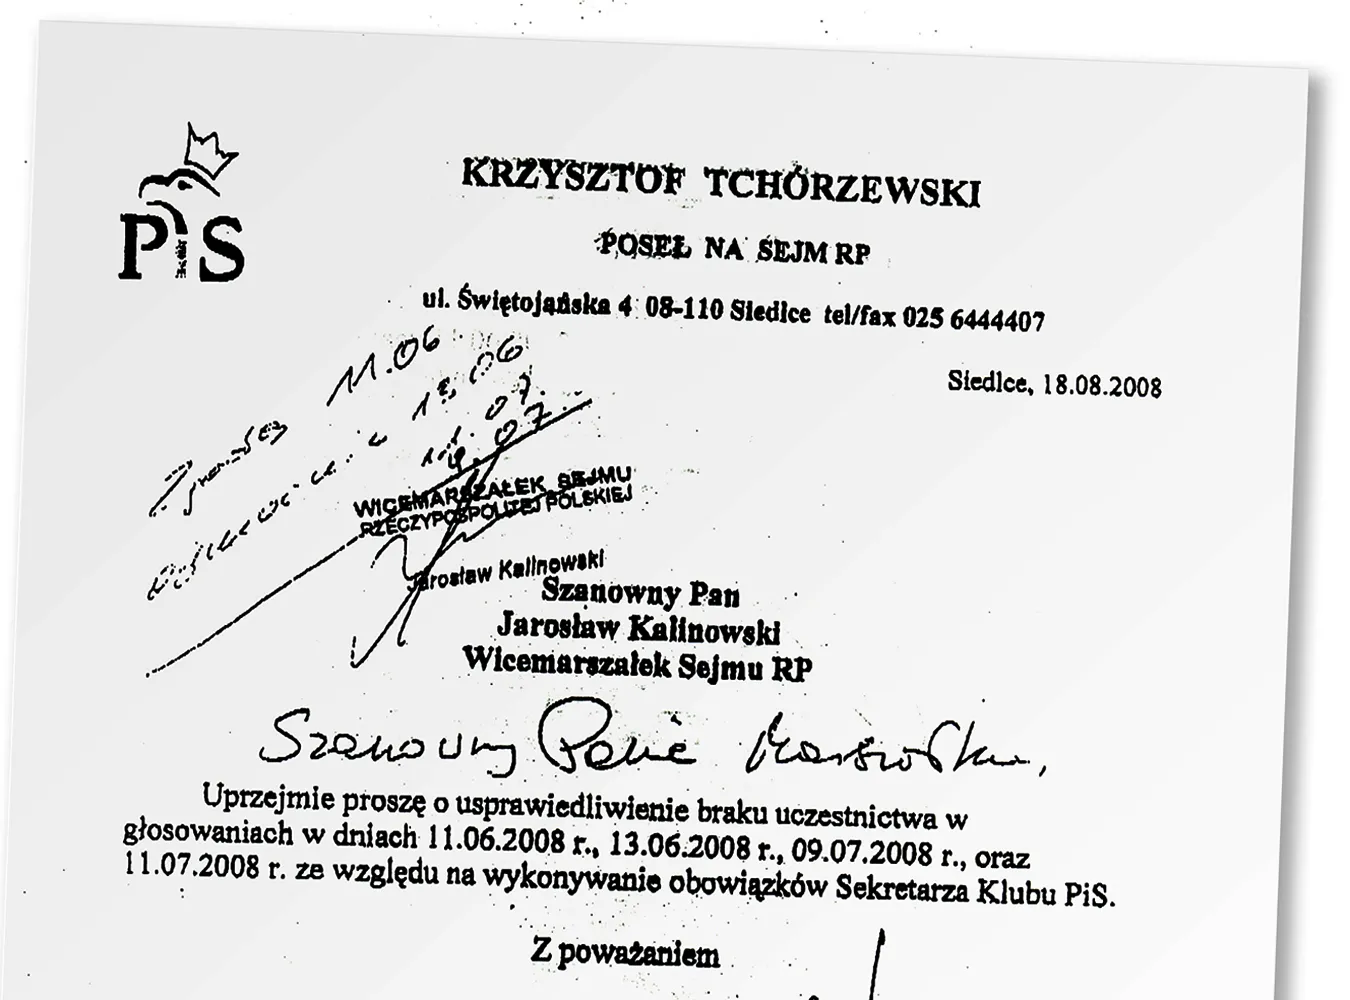 PiS
KRZYSZTOF TCHÓRZEWSKI
POSEŁ NA SEJM RP
ul. Świętojańska 4 08-110 Siedlce tel/fax 025 6444407
Siedlce, 18.08.2008
11.06
13.06
07.
07.
WICEMARSZAŁEK SEJMU
RZECZYPOSPOLITEJ POLSKIEJ
Jarosław Kalinowski
Szanowny Pan
Jarosław Kalinowski
Wicemarszałek Sejmu RP
Szanowny Panie Marszałku,
Uprzejmie proszę o usprawiedliwienie braku uczestnictwa w
głosowaniach w dniach 11.06.2008 r., 13.06.2008 r., 09.07.2008 r., oraz
11.07.2008 r. ze względu na wykonywanie obowiązków Sekretarza Klubu PiS.
Z poważaniem